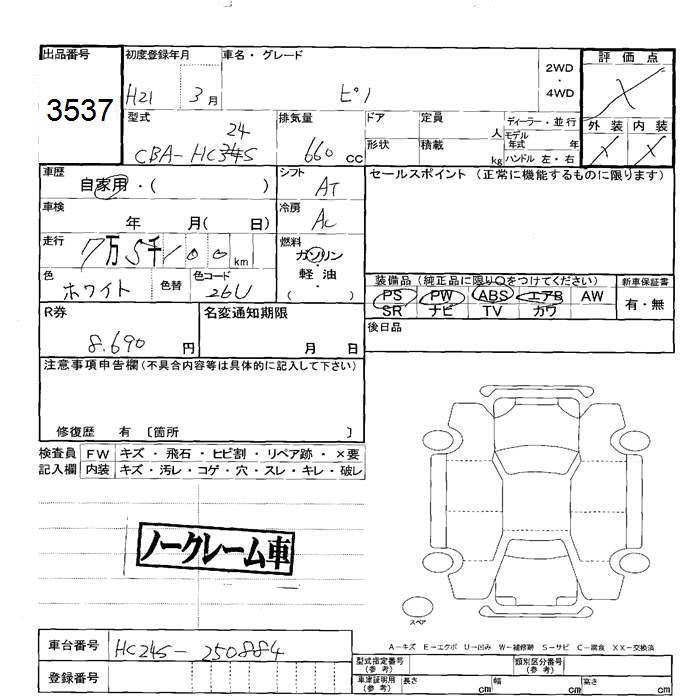 出品番号 初度登録年月 車名・グレード 評価点
3537 H21 3月 ピノ 2WD・4WD
型式 排気量 ドア 定員 ディーラー・並行 外装 内装
24
CBA-HC34S 660cc 人 モデル年式 年
形状 積載 kg ハンドル 左・右
車歴 シフト セールスポイント (正常に機能するものに限ります)
自家用・( ) AT
車検 冷房
年 月( 日) AC
走行 燃料
7万5千100km ガソリン・軽油
( )
色 色替 色コード 装備品 (純正品に限り○をつけてください) 新車保証書
ホワイト 26U PS PW ABS エアB AW 有・無
SR ナビ TV カワ
R券 名変通知期限 後日品
8.690円 月 日
注意事項申告欄(不具合内容等は具体的に記入して下さい)
修復歴 有 〔箇所 〕
検査員 FW キズ・飛石・ヒビ割・リペア跡・×要
記入欄 内装 キズ・汚レ・コゲ・穴・スレ・キレ・破レ
ノークレーム車
スペア
A-キズ E-エクボ U-凹み W-補修跡 S-サビ C-腐食 XX-交換済
車台番号 HC24S-250884
型式指定番号(参考) 類別区分番号(参考)
登録番号
車庫証明用(参考) 長さ cm 幅 cm 高さ cm